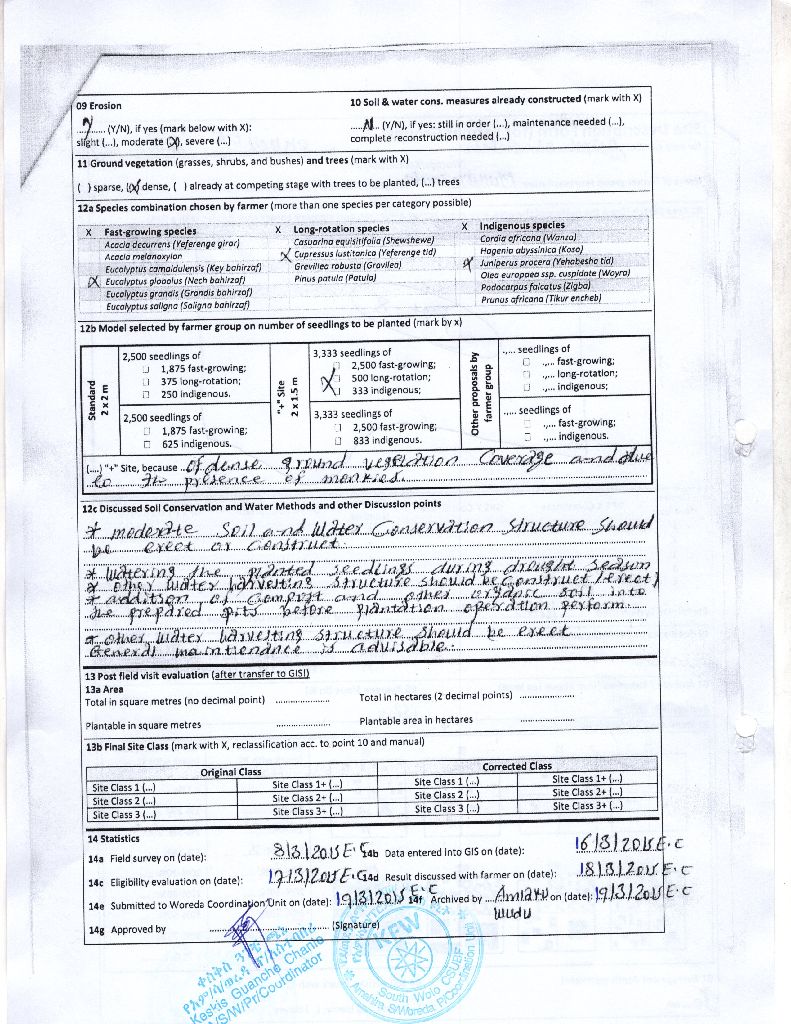 09 Erosion
10 Soil & water cons. measures already constructed (mark with X)
..Y... (Y/N), if yes (mark below with X):
slight (...), moderate (X), severe (...)
.....N.. (Y/N), if yes: still in order (...), maintenance needed (...),
complete reconstruction needed (...)
11 Ground vegetation (grasses, shrubs, and bushes) and trees (mark with X)
( ) sparse, (X) dense, ( ) already at competing stage with trees to be planted, (...) trees
12a Species combination chosen by farmer (more than one species per category possible)
X Fast-growing species
Acacia decurrens (Yeferenge girar)
Acacia melanoxylon
Eucalyptus camaldulensis (Key bahirzaf)
X Eucalyptus globolus (Nech bahirzaf)
Eucalyptus grandis (Grandis bahirzaf)
Eucalyptus saligna (Saligna bahirzaf)
X Long-rotation species
Casuarina equisitifolia (Shewshewe)
X Cupressus lustitanica (Yeferenge tid)
Grevillea robusta (Gravilea)
Pinus patula (Patula)
X Indigenous species
Cordia africana (Wanza)
Hagenia abyssinica (Koso)
X Juniperus procera (Yehabesha tid)
Olea europpea ssp. cuspidate (Woyra)
Podocarpus falcatus (Zigba)
Prunus africana (Tikur encheb)
12b Model selected by farmer group on number of seedlings to be planted (mark by x)
Standard
2 x 2 m
2,500 seedlings of
1,875 fast-growing;
375 long-rotation;
250 indigenous.
2,500 seedlings of
1,875 fast-growing;
625 indigenous.
"+" Site
2 x 1.5 m
3,333 seedlings of
2,500 fast-growing;
X 500 long-rotation;
333 indigenous;
3,333 seedlings of
2,500 fast-growing;
833 indigenous.
Other proposals by
farmer group
.,... seedlings of
.,... fast-growing;
.,... long-rotation;
.,... indigenous;
..... seedlings of
.,... fast-growing;
.,... indigenous.
(....) "+" Site, because of dense ground vegetation coverage and due
to the presence of monkies.
12c Discussed Soil Conservation and Water Methods and other Discussion points
* moderate Soil and Water Conservation Structure Should
be erect or Construct.
* Watering the planted seedlings during drought season
* other Water harvesting structure should be Construct (erect)
* addition of Compost and other organic soil into
the prepared pits before plantation operation perform.
* other Water harvesting structure should be erect
General maintienance is advisable.
13 Post field visit evaluation (after transfer to GIS!)
13a Area
Total in square metres (no decimal point) ....................
Total in hectares (2 decimal points) ....................
Plantable in square metres ....................
Plantable area in hectares ....................
13b Final Site Class (mark with X, reclassification acc. to point 10 and manual)
Original Class
Corrected Class
Site Class 1 (...) Site Class 1+ (...) Site Class 1 (...) Site Class 1+ (...)
Site Class 2 (...) Site Class 2+ (...) Site Class 2 (...) Site Class 2+ (...)
Site Class 3 (...) Site Class 3+ (...) Site Class 3 (...) Site Class 3+ (...)
14 Statistics
14a Field survey on (date): 8/3/2015 E.C
14b Data entered into GIS on (date): 16/3/2015 E.C
14c Eligibility evaluation on (date): 17/3/2015 E.C
14d Result discussed with farmer on (date): 18/3/2015 E.C
14e Submitted to Woreda Coordination Unit on (date): 19/3/2015 E.C
14f Archived by ....Amlaku wudu on (date): 19/3/2015 E.C
14g Approved by .................... (Signature)
Keskis Guanche Chanie
S/W/Pr/Coordinator
KFW
South Wolo CSUEF
Amahra S/Woreda P/Coordination Unit